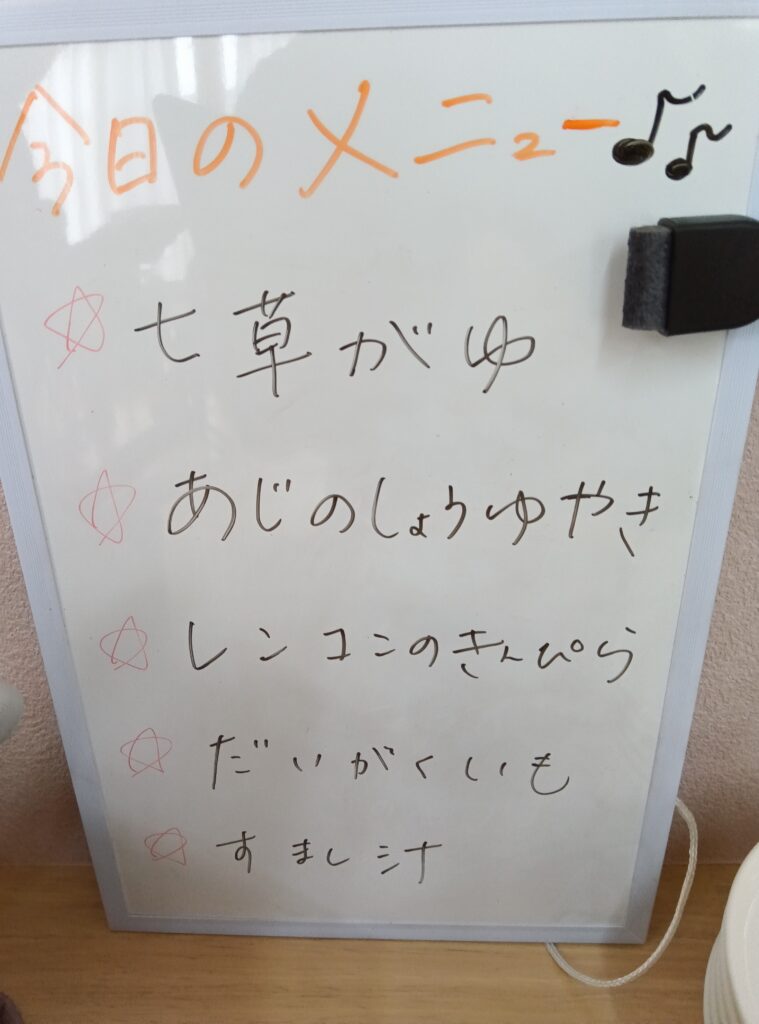 今日のメニュー♪♪
☆ 七草がゆ
☆ あじのしょうゆやき
☆ レンコンのきんぴら
☆ だいがくいも
☆ すまし汁